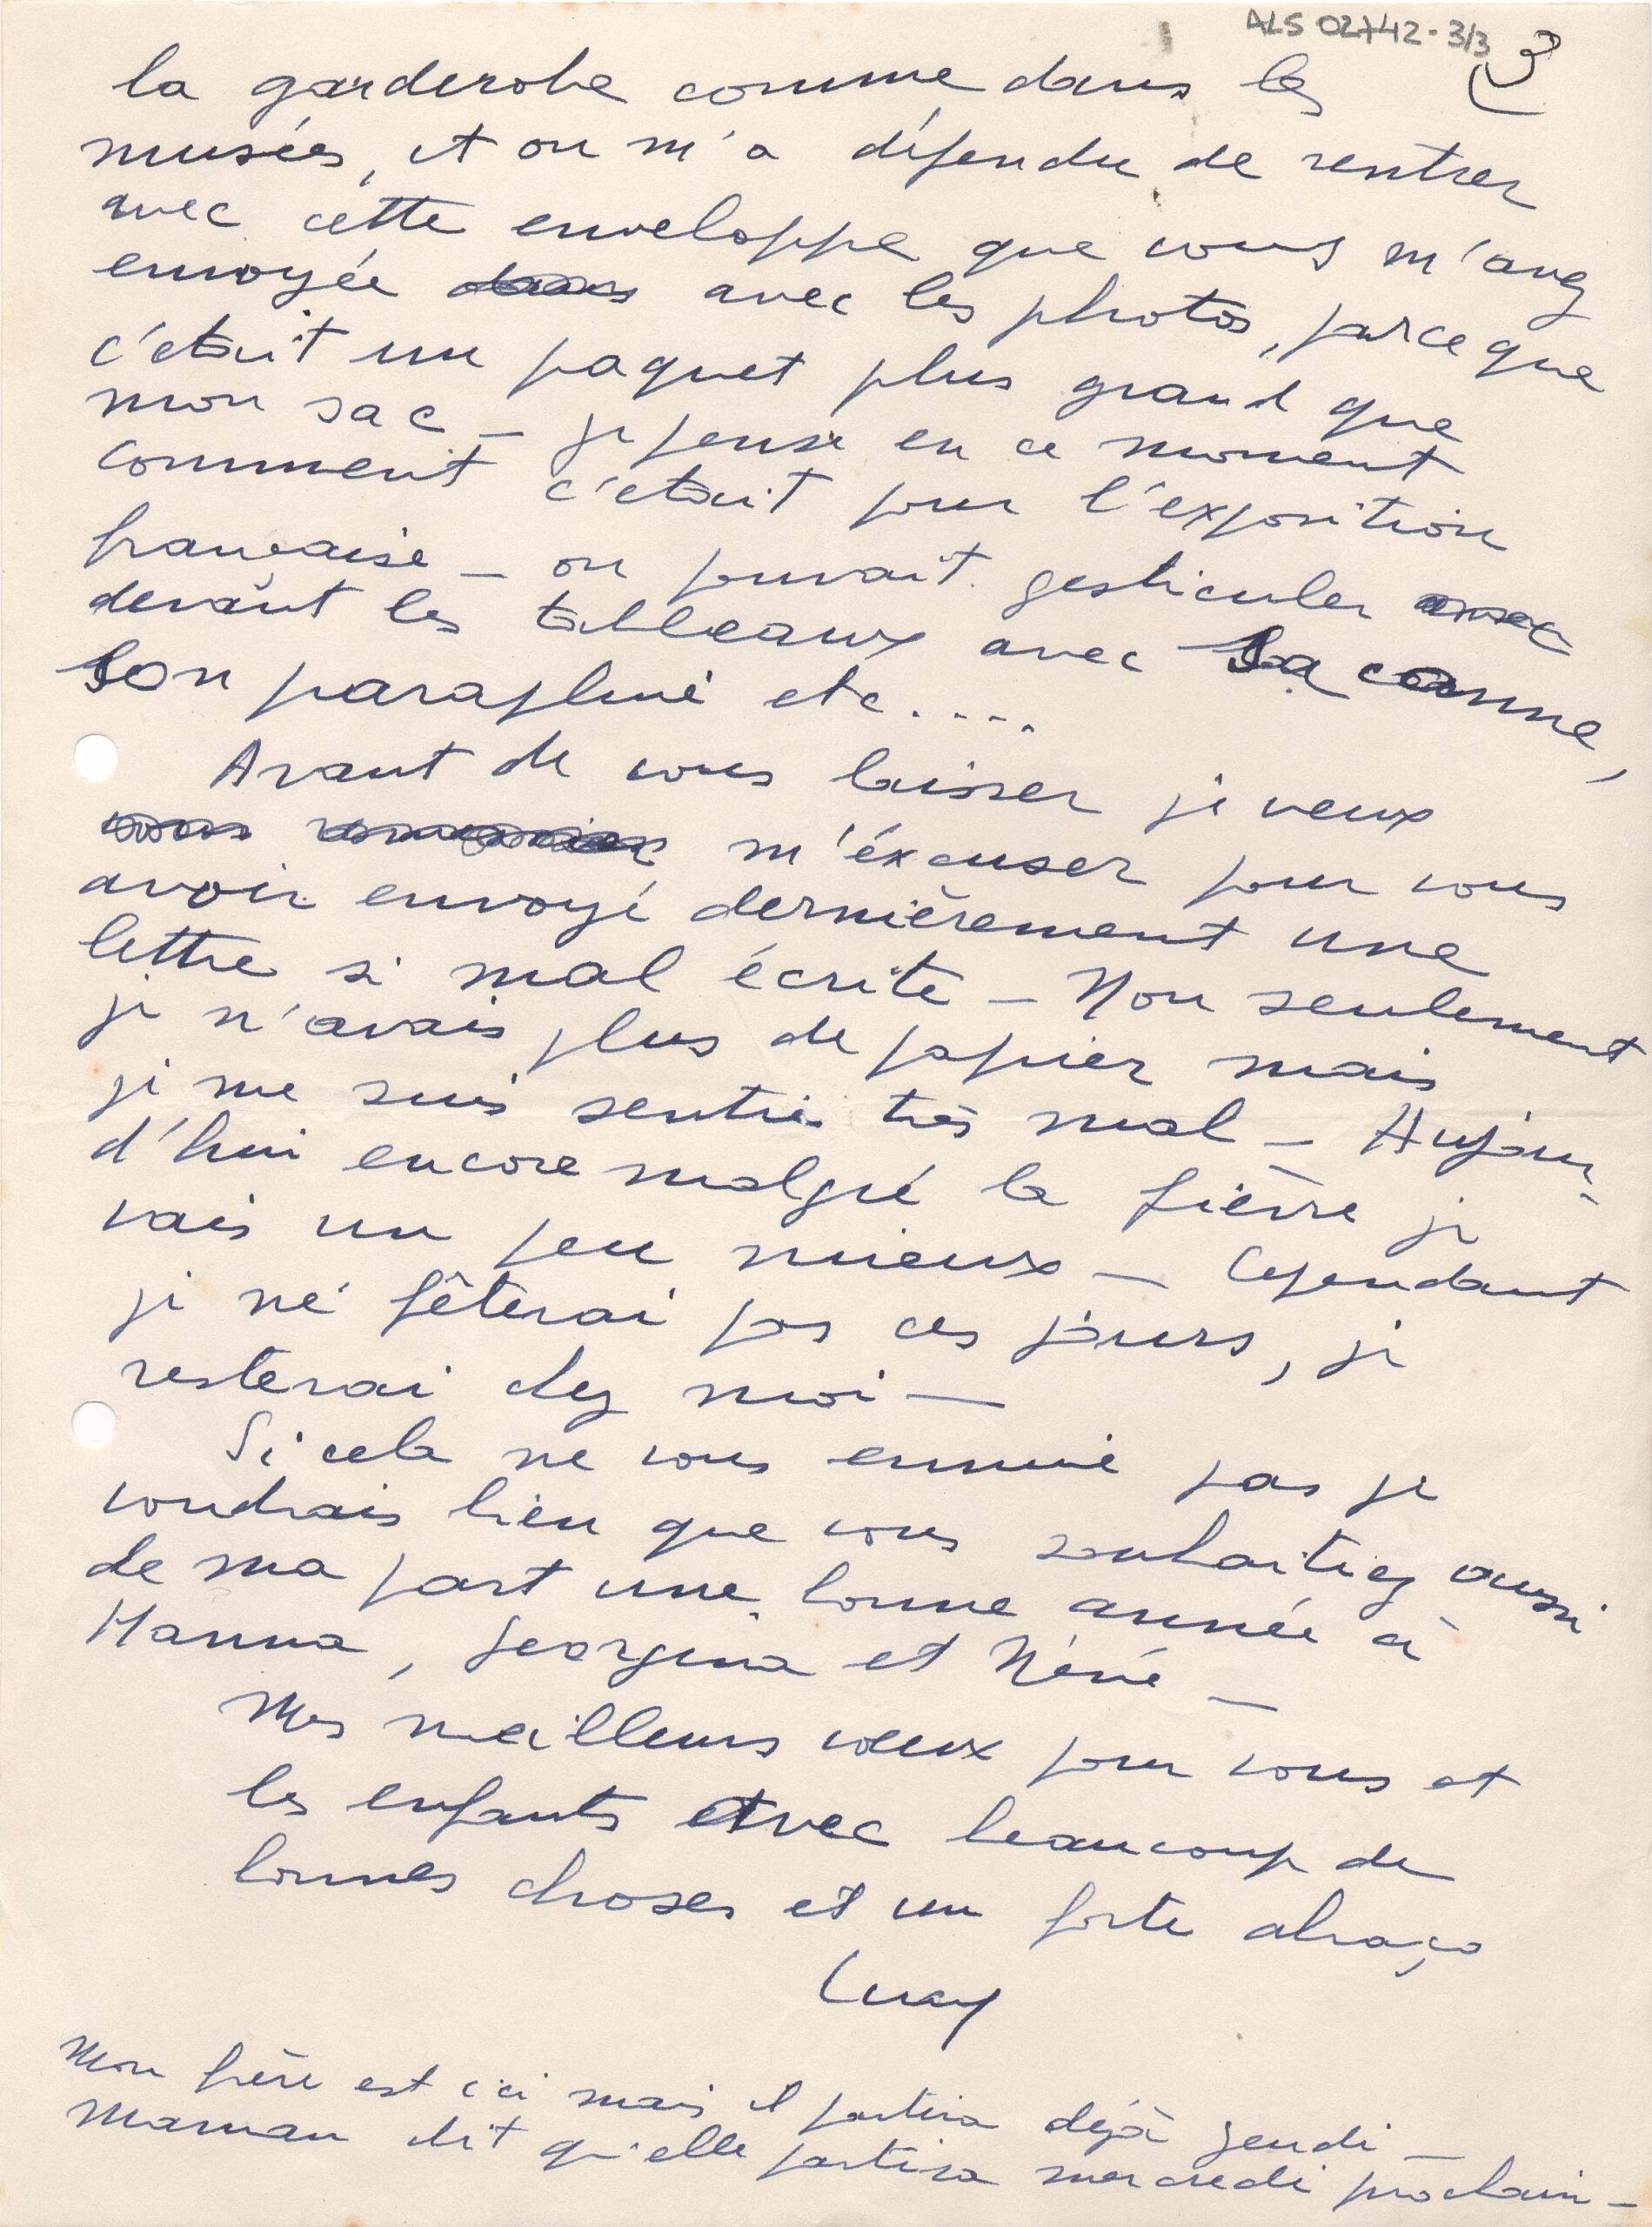 ALS 02742-3/3
3
la garderobe comme dans les
musées, et on m'a défendu de rentrer
avec cette enveloppe que vous m'avez
envoyée dans avec les photos, parce que
c'était un paquet plus grand que
mon sac – je pense en ce moment
comment c'était pour l'exposition
française – on pouvait gesticuler avec
devant les tableaux avec sa canne,
son parapluie etc....
Avant de vous laisser je veux
vous remercier m'éxcuser pour vous
avoir envoyé dernièrement une
lettre si mal écrite – Non seulement
je n'avais plus de papier mais
je me suis sentie très mal – Aujour-
d'hui encore malgré la fièvre je
vais un peu mieux – Cependant
je ne fêterai pas ces jours, je
resterai chez moi –
Si cela ne vous ennuie pas je
voudrais bien que vous souhaitiez aussi
de ma part une bonne année à
Hanna, Georgina et Néné –
Mes meilleurs voeux pour vous et
les enfants avec beaucoup de
bonnes choses et un forte abraço
Lucy
Mon frère est ici mais il partira déjà jeudi –
Maman dit qu'elle partira mercredi prochain –